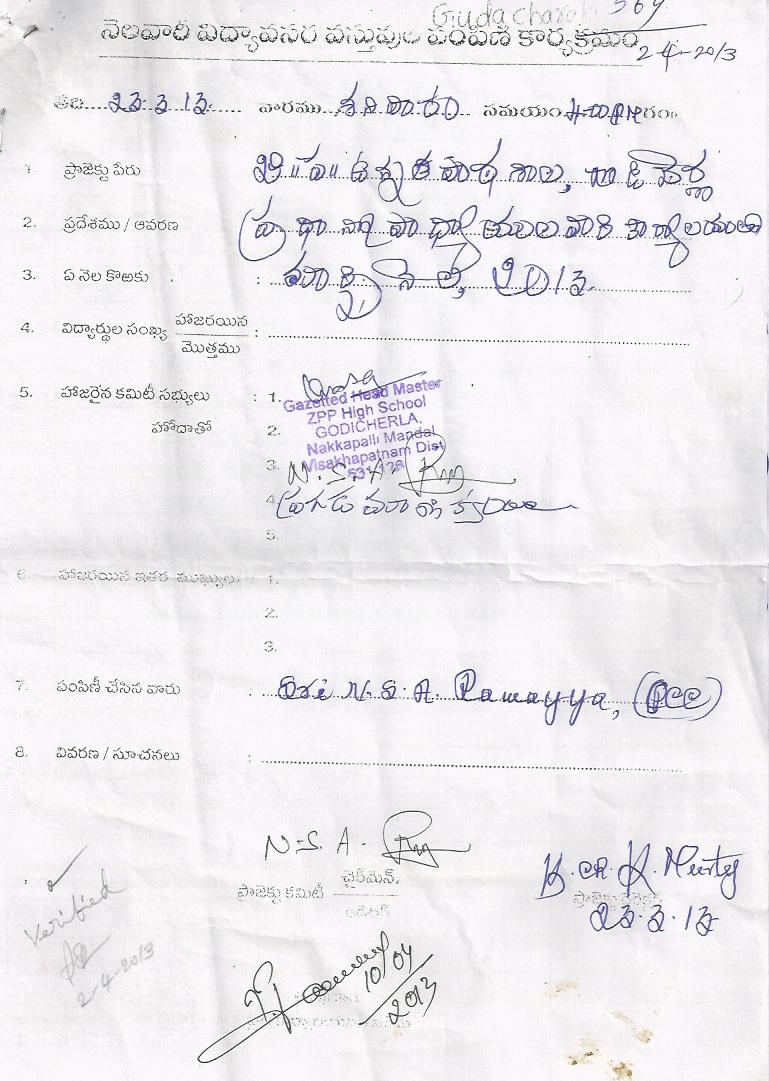 569
2-4-2013
నెలవారీ విద్యావసర వస్తువుల పంపిణీ కార్యక్రమం
తేది 23.3.13. వారము శనివారం సమయం 4-00 PM గం॥
1. ప్రాజెక్టు పేరు ఉన్నత పాఠశాల, గొడిచెర్ల
2. ప్రదేశము / ఆవరణ : ప్రధానోపాధ్యాయుల వారి కార్యాలయం
3. ఏ నెల కొఱకు : మార్చి నెల, 2013.
4. విద్యార్థుల సంఖ్య హాజరయిన :
మొత్తము
5. హాజరైన కమిటీ సభ్యులు : 1.
Gazetted Head Master
ZPP High School
హోదాతో 2. GODICHERLA,
Nakkapalli Mandal
3. Visakhapatnam Dist
531 126
N. S. A.
4. ప్రగడ
5.
6. హాజరయిన ఇతర ముఖ్యులు : 1.
2.
3.
7. పంపిణీ చేసిన వారు : Sri N. S. A. Ramayya,
8. వివరణ / సూచనలు :
N. S. A.
ప్రాజెక్టు కమిటీ ఛైర్‌మెన్.
ఆడిటర్
K. Murty
23.3.13
Verified
2-4-2013
10/04
2013